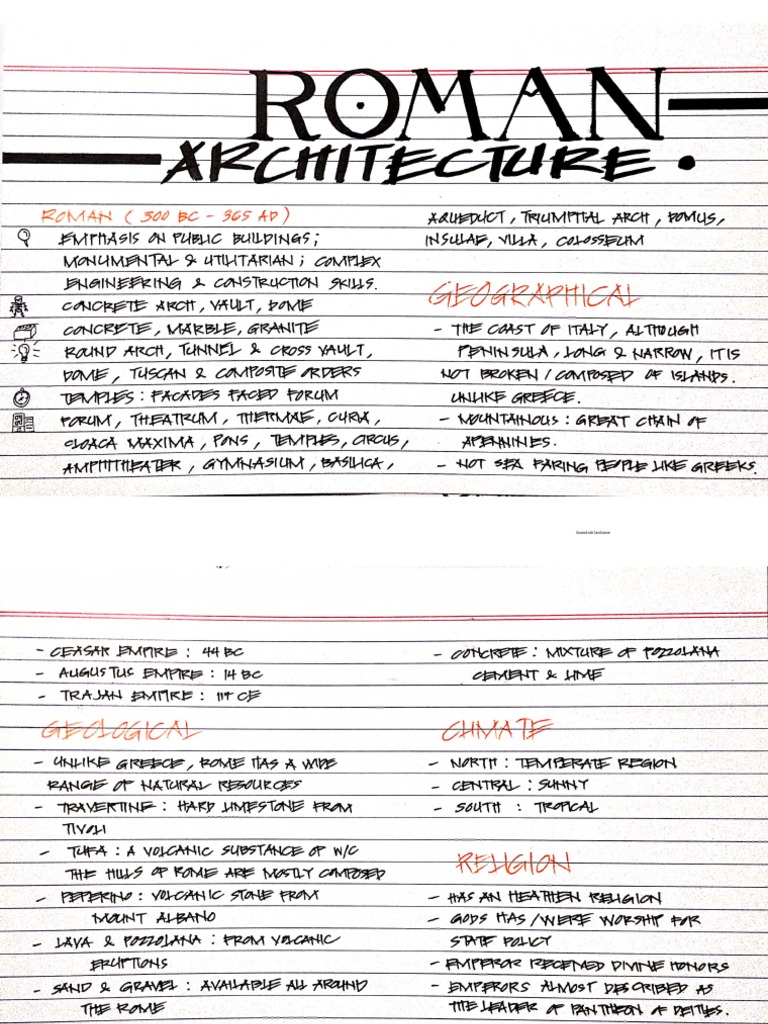 ROMAN
ARCHITECTURE.
ROMAN (300 BC - 365 AD)
EMPHASIS ON PUBLIC BUILDINGS;
MONUMENTAL & UTILITARIAN; COMPLEX
ENGINEERING & CONSTRUCTION SKILLS.
CONCRETE ARCH, VAULT, DOME
CONCRETE, MARBLE, GRANITE
ROUND ARCH, TUNNEL & CROSS VAULT,
DOME, TUSCAN & COMPOSITE ORDERS
TEMPLES: FACADES FACED FORUM
FORUM, THEATRUM, THERMAE, CURIA,
CLOACA MAXIMA, PONS, TEMPLES, CIRCUS,
AMPHITHEATER, GYMNASIUM, BASILICA,
AQUEDUCT, TRIUMPHAL ARCH, DOMUS,
INSULAE, VILLA, COLOSSEUM
GEOGRAPHICAL
- THE COAST OF ITALY, ALTHOUGH
PENINSULA, LONG & NARROW, IT IS
NOT BROKEN / COMPOSED OF ISLANDS.
UNLIKE GREECE.
- MOUNTAINOUS: GREAT CHAIN OF
APENNINES.
- NOT SEA FARING PEOPLE LIKE GREEKS.
Scanned with CamScanner
- CEASAR EMPIRE: 44 BC
- AUGUSTUS EMPIRE: 14 BC
- TRAJAN EMPIRE: 117 CE
GEOLOGICAL
- UNLIKE GREECE, ROME HAS A WIDE
RANGE OF NATURAL RESOURCES
- TRAVERTINE: HARD LIMESTONE FROM
TIVOLI
- TUFA: A VOLCANIC SUBSTANCE OF W/C
THE HILLS OF ROME ARE MOSTLY COMPOSED
- PEPERINO: VOLCANIC STONE FROM
MOUNT ALBANO
- LAVA & POZZOLANA: FROM VOLCANIC
ERUPTIONS
- SAND & GRAVEL: AVAILABLE ALL AROUND
THE ROME
- CONCRETE: MIXTURE OF POZZOLANA
CEMENT & LIME
CLIMATE
- NORTH: TEMPERATE REGION
- CENTRAL: SUNNY
- SOUTH : TROPICAL
RELIGION
- HAS AN HEATHEN RELIGION
- GODS HAS/WERE WORSHIP FOR
STATE POLICY
- EMPEROR RECEIVED DIVINE HONORS
- EMPERORS ALMOST DESCRIBED AS
THE LEADER OF PANTHEON OF DEITIES.